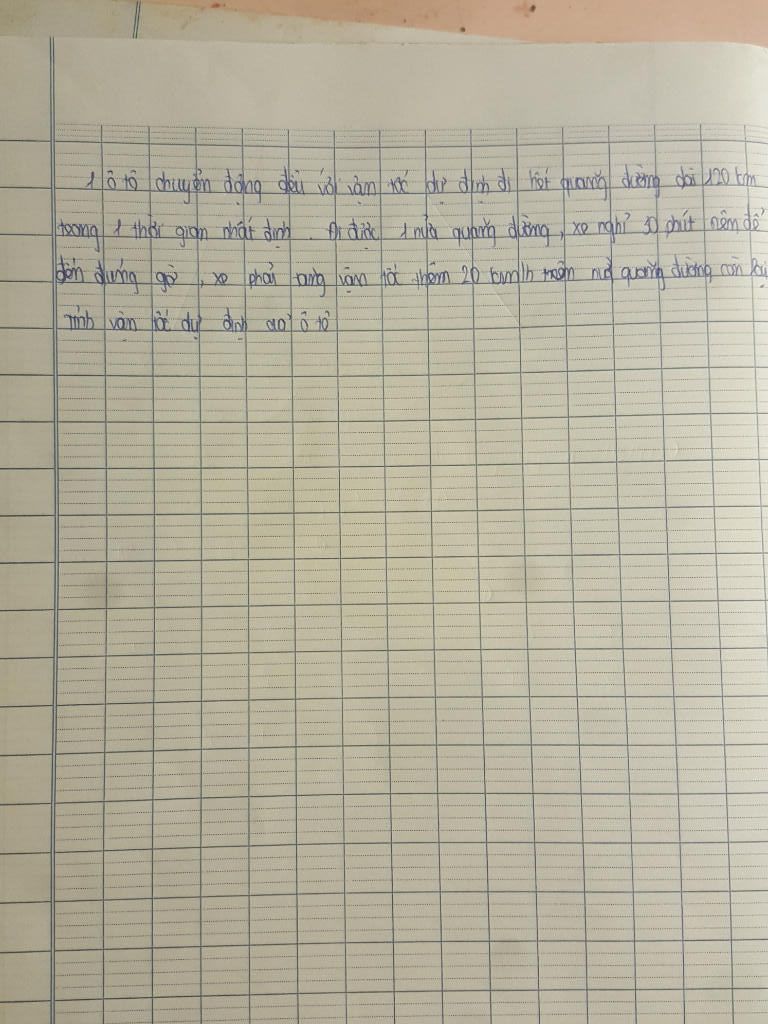 1 ô tô chuyển động đều với vận tốc dự định đi hết quãng đường dài 120 km
trong 1 thời gian nhất định. Đi được 1 nửa quãng đường, xe nghỉ 30 phút nên để
đến đúng giờ, xe phải tăng vận tốc thêm 20 km/h trên nửa quãng đường còn lại
Tính vận tốc dự định của ô tô